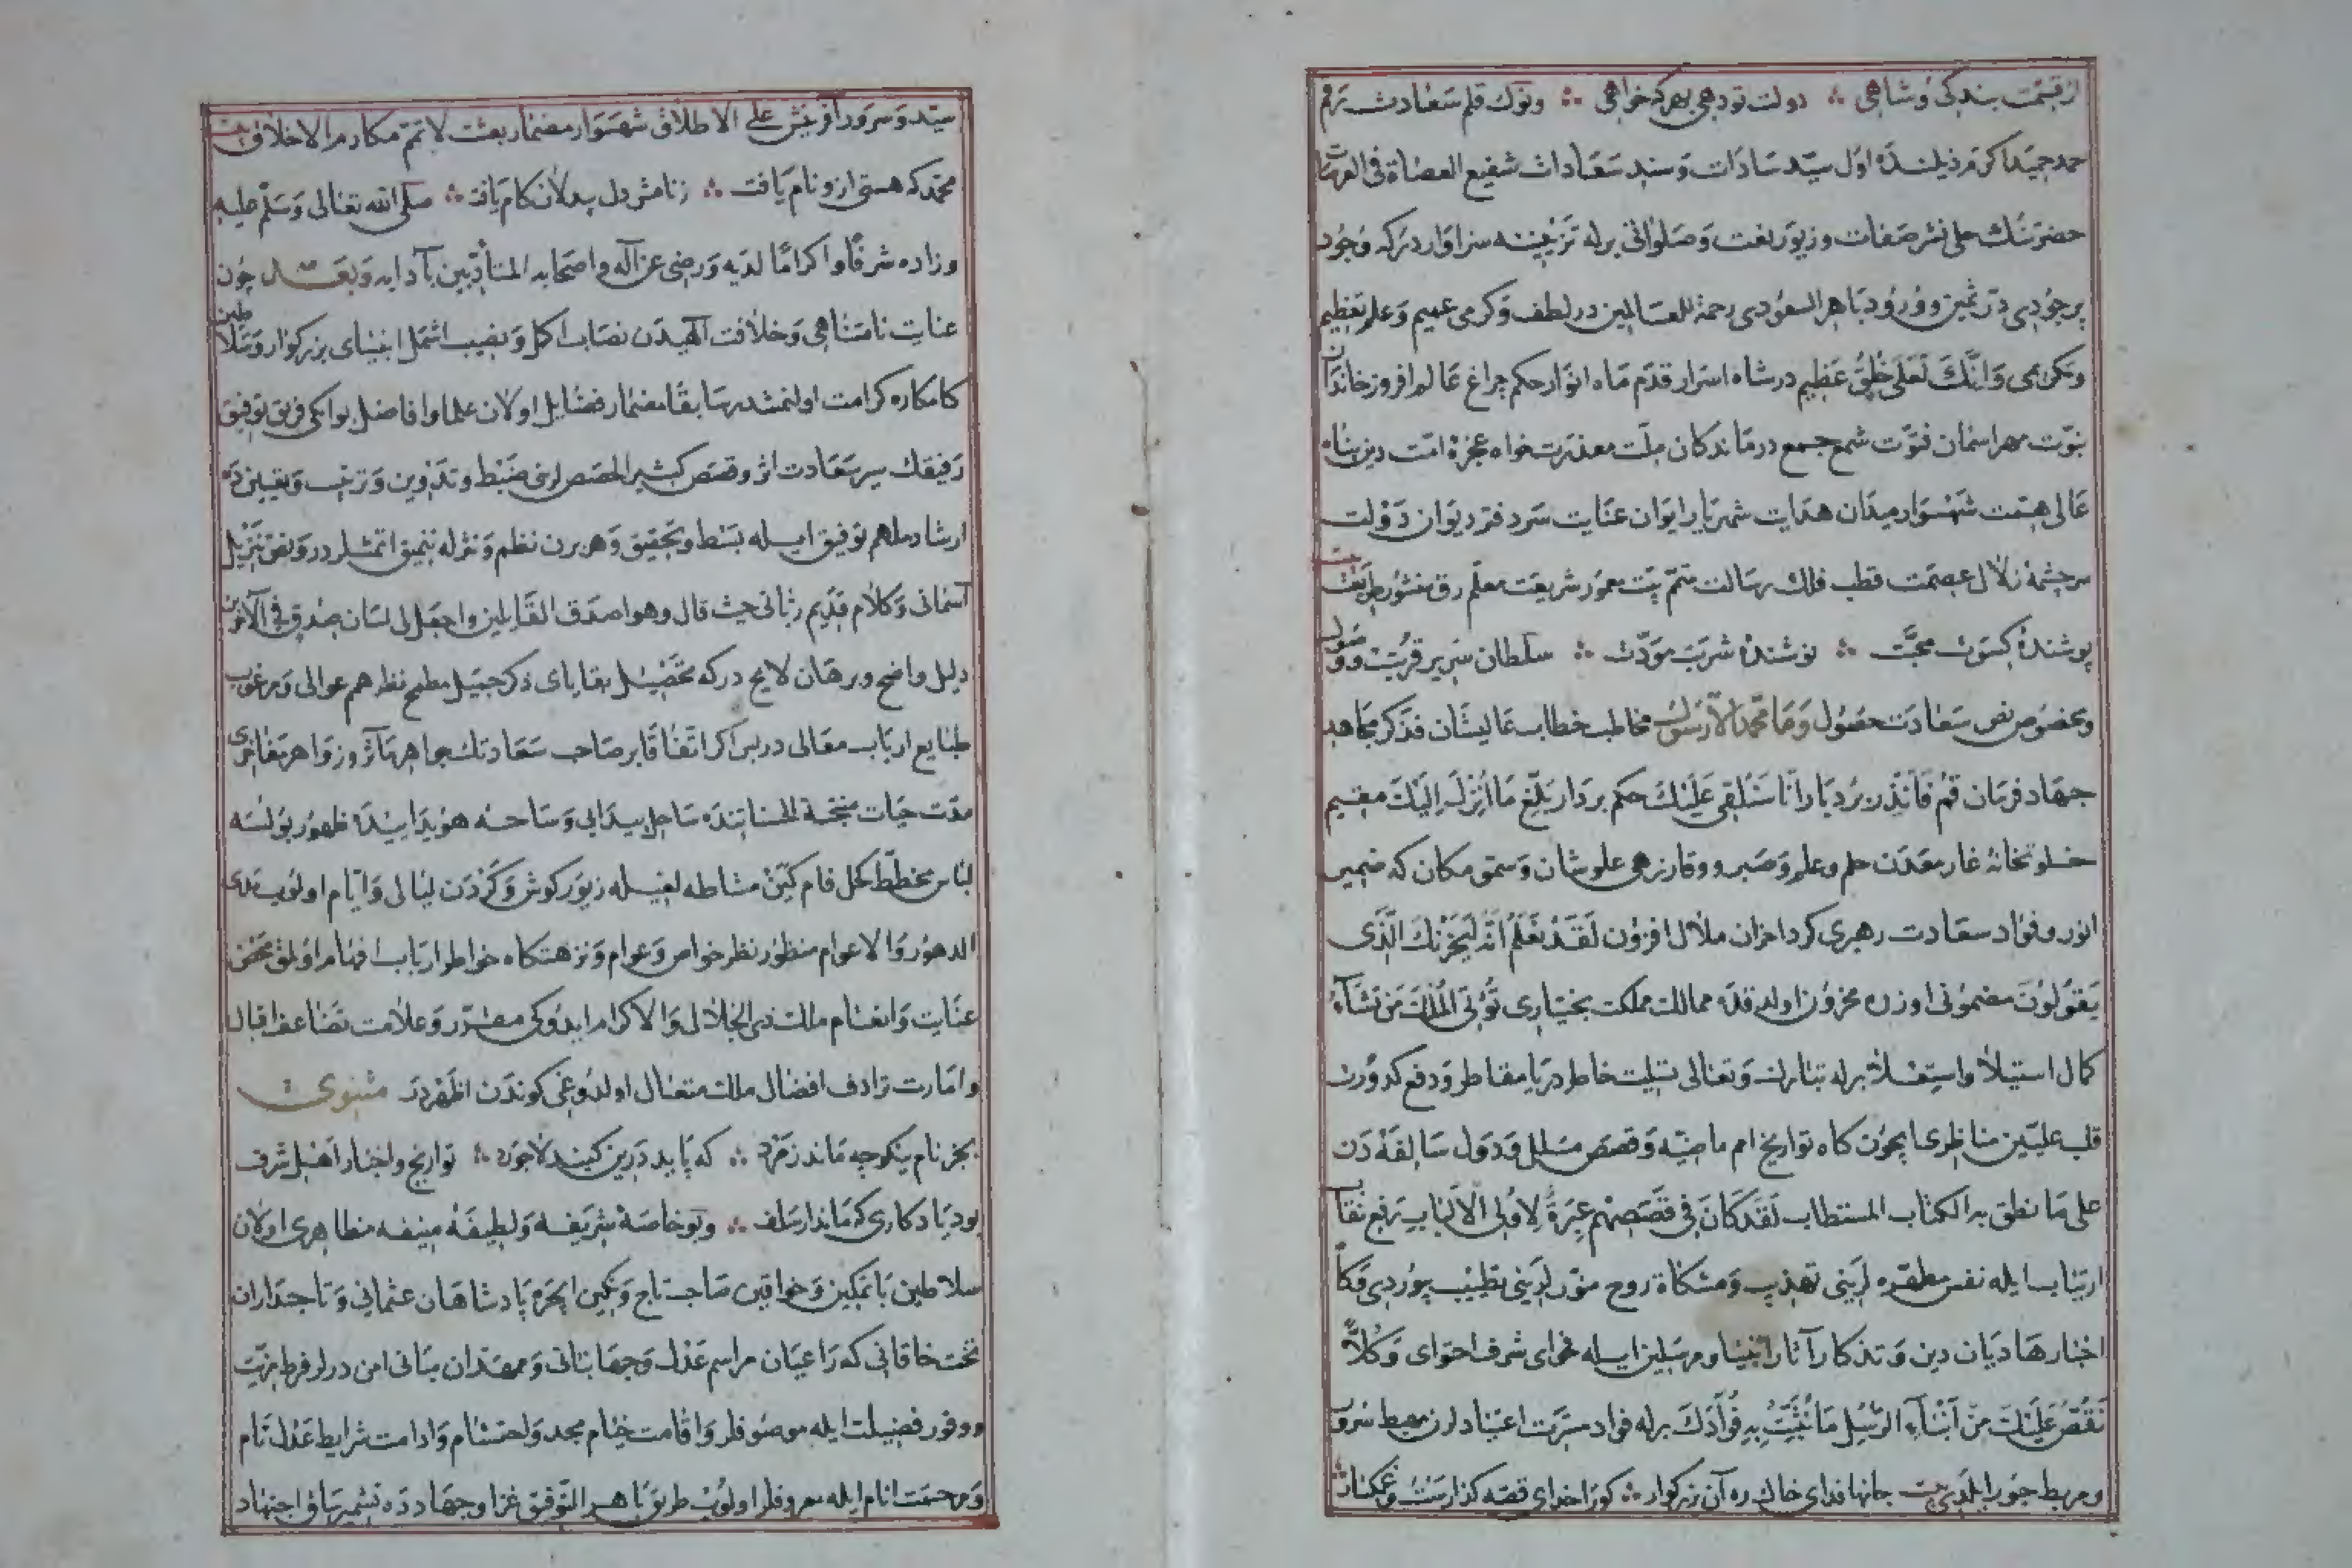 از قسمت بندکی و شاهی ∴ دولت تو دهی بهر که خواهی ∴ و نوک قلم سعادت رقم
حمد حمیداکرم ذیلنده اول سید سادات و سند سعادات شفیع العصاة فی العرصات
حضرتنک حلی نشر صفات و زیور نعت و صلواتی برله تزیینه سزاوار درکه وجود
پر جودی در ثمین و ورود باهر السعودی رحمة للعالمین در لطف و کرمی عمیم و علم تعظیم
وتکریمی وَاِنَّكَ لَعَلٰی خُلُقٍ عَظیم در شاه اسرار قدم ماه انوار حکم چراغ عالم افروز خاندان
نبوت مهر آسمان فتوت شمع جمع درماندکان ملت معذرت خواه عجزهٔ امت دین پناه
عالی همت شهسوار میدان هدایت شهریار ایوان عنایت سر دفتر دیوان دولت
سرچشمهٔ زلال عصمت قطب فلک رسالت متمم بیت معمور شریعت معلم رق منشور طریقت
پوشندهٔ کسوت محبت ∴ نوشندهٔ شربت مودت ∴ سلطان سریر قربت و وصول
وبخصوص نص سعادت حصول وَمَا مُحَمَّدٌ اِلَّا رَسُولٌ مخاطب خطاب عالیشان فذکر مجاهد
جهاد فرمان قُمْ فَاَنْذِر بردبار اِنَّا سَنُلْقِی عَلَیْكَ حکم بردار بَلِّغْ مَا اُنْزِلَ اِلَیْكَ مقیم
خلوتخانهٔ غار معدن حلم و علم و صبر و وقار زهی علو شان و سمو مکان که ضمیر
انور و فؤاد سعادت رهبری کرد احزان ملال افزون لَقَدْ نَعْلَمُ اِنَّهُ لَیَحْزُنُكَ الَّذی
یَقُولُونَ مضمونی اوزره محزون اولدقده ممالک مملکت بخشیاری تُؤتِی الْمُلْكَ مَنْ تَشَآءُ
کمال استیلا واستعلا برله تبارک وتعالی تسلیت خاطر دریا مقاطر و دفع کدورت
قلب علیین مناظری ایچون کاه تواریخ امم ماضیه و قصص ملل و دول سالفه دن
علی ما نطق به الکتاب المستطاب لَقَدْ کَانَ فِی قَصَصِهِمْ عِبْرَةٌ لِاُولِی الْاَلْبَابِ رفع نقاب
ارتیاب ایله نفس مطهره لرینی تهذیب و مشکاة روح منور لرینی تطییب بیوردی وکاه
اخبار هادیان دین و تذکار آثار انبیا و مرسلین ایله فحوای شرف احتوای وَکُلًّا
نَقُصُّ عَلَیْكَ مِنْ اَنْبَآءِ الرُّسُلِ مَا نُثَبِّتُ بِهِ فُؤَادَكَ برله فؤاد مسرت اعتیادلرن مهبط سرور
و مربط حبور ایلدی بیت جانها فدای خاک ره آن بزرکوار ∴ کورا خدای قصه کذارست و غمکسار
سید و سرور آفرینش علی الاطلاق شهسوار مضمار بعثت لاتمم مکارم الاخلاق بیت
محمد که هستی ازو نام یافت ∴ زنامش دل بیدلان کام یافت ∴ صلی الله تعالی وسلم علیه
وزاده شرفا واکراما لدیه ورضی عن آله واصحابه المتأدبین بآدابه وبعد چون
عنایت نامتناهی و خلافت الهیدن نصاب اکمل و نصیب اشمل انبیای بزرکوار و سلاطین
کامکاره کرامت اولنمشدر سابقا مضمار فضایل اولان علما وافاضل بو ایکی فریق توفیق
رفیقک سیر سعادت اثر و قصص کثیر الحصص لرنی ضبط و تدوین و ترتیب و تعیینده
ارشاد ملهم توفیق ایله بسط و تحقیق و هر برن نظم و نثرله تنمیق اتمشلردر و نص تنزیل
آسمانی و کلام قدیم ربانی حیث قال وهو اصدق القایلین واجعل لی لسان صدق فی الآخرین
دلیل واضح و برهان لایح درکه تحصیل بقایای ذکر جمیل مطمح نظر همم عوالی و مرغوب
طبایع ارباب معالی در پس اکر اتفاقا بر صاحب سعادتک جواهر مآثر و زواهر مفاخری
مدت حیات منتخبة الحسناتنده ساحل پیدایی و ساحهٔ هویدایده ظهور بولسه
لباس مخطط کحل فام کین مشاطه لغیله زیور کوش و کردن لیالی و ایام اولوب مدی
الدهور والاعوام منظور نظر خواص و عوام و نزهتکاه خواطر ارباب افهام اولمق محض
عنایت وانعام ملک ذی الجلال والاکرام ایدوکی مقرر و علامت تضاعف اقبال
وامارت ترادف افضال ملک متعال اولدوغی کوندن اظهردر مثنوی
بجز نام نیکو چه ماند زمرد ∴ که پاید درین کنبد لاجورد ∴ تواریخ واخبار اهل شرف
بود یادکاری که ماند از سلف ∴ وبو خاصهٔ شریفه و لطیفهٔ منیفه مظاهری اولان
سلاطین با تمکین و خواقین صاحب تاج و نکین ایچره پادشاهان عثمانی و تاجداران
تخت خاقانی که راعیان مراسم عدل و جهانبانی و ممهدان مبانی امن در لر فرط مزیت
ووفور فضیلت ایله موصوفلر واقامت خیام مجد واحتشام وادامت شرایط عدل تام
ومرحمت انام ایله معروفلر اولوب طریق باهر التوفیق غزا و جهادده تشمیر ساق اجتهاد